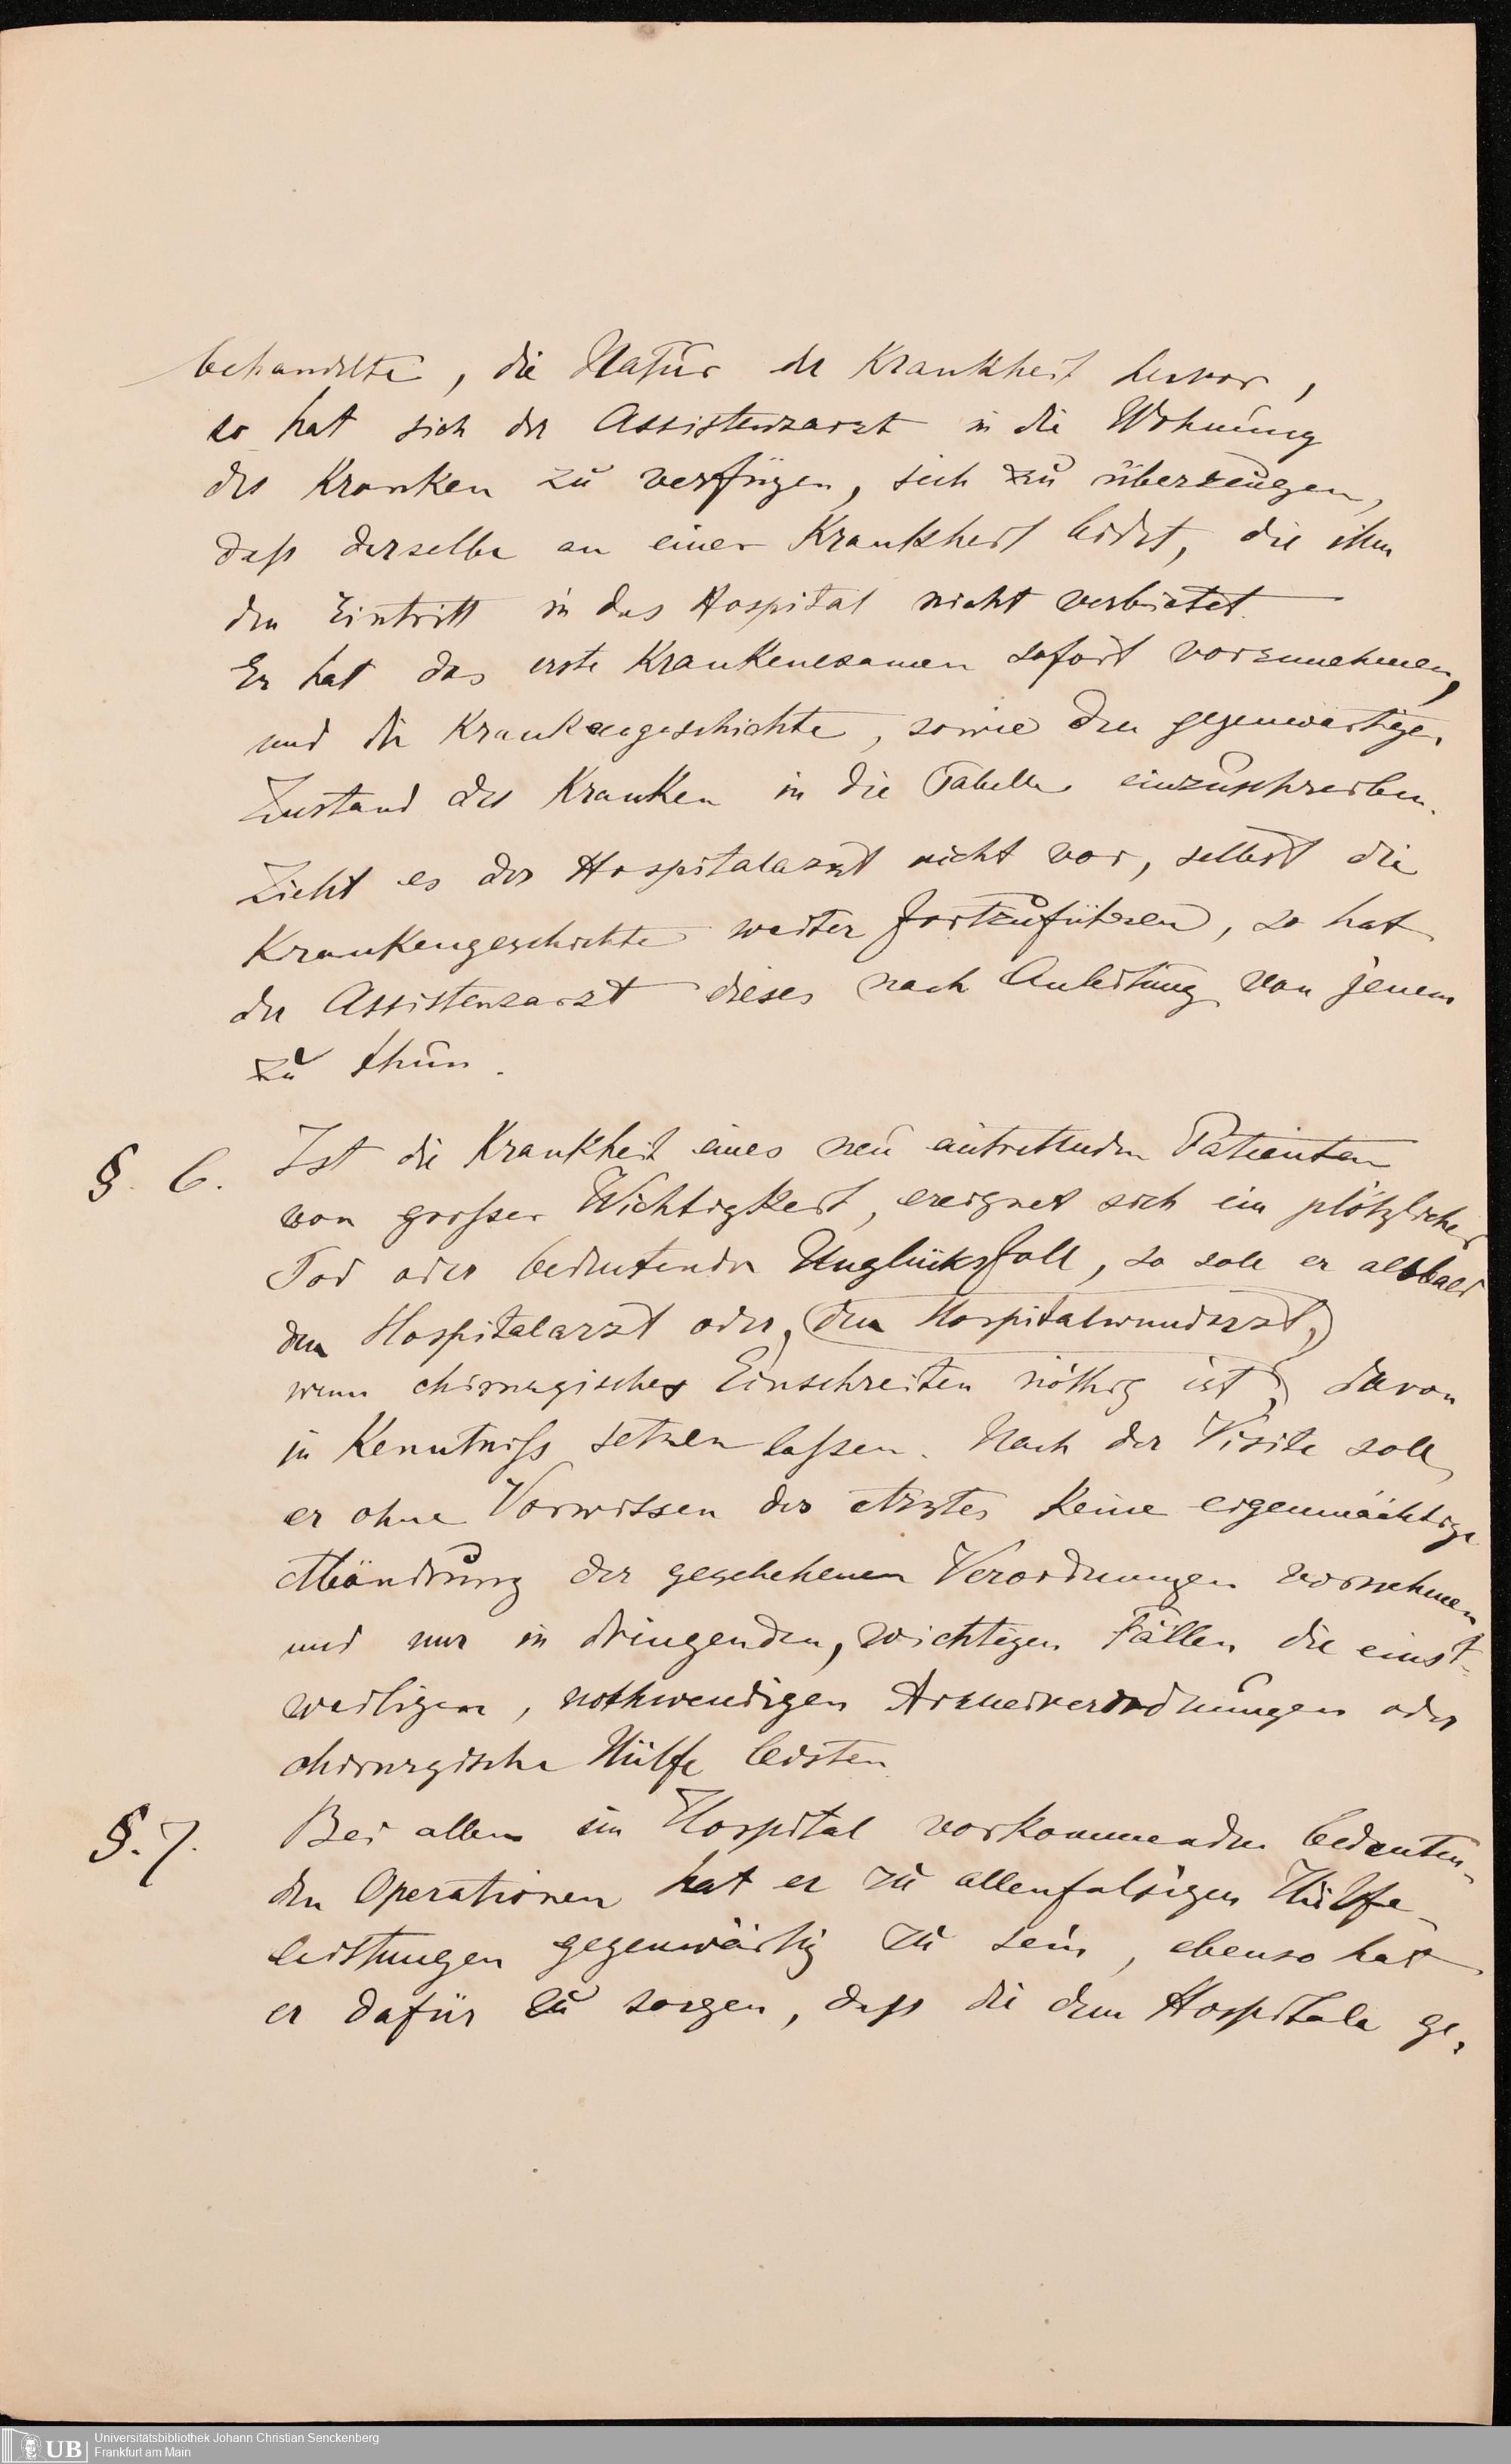 behandelte, die Natur der Krankheit hervor,
so hat sich der Assistenzarzt in die Wohnung
des Kranken zu verfügen, sich zu überzeugen,
daß derselbe an einer Krankheit leidet, die ihm
den Eintritt in das Hospital nicht verbietet.
Er hat das erste Krankenexamen sofort vorzunehmen,
und die Krankengeschichte, sowie den gegenwärtigen
Zustand des Kranken in die Tabelle einzuschreiben.
Zieht es der Hospitalarzt nicht vor, selbst die
Krankengeschichte weiter fortzuführen, so hat
der Assistenzarzt dieses nach Anleitung von jenem
zu thun.
§. 6. Ist die Krankheit eines neu eintretenden Patienten
von großer Wichtigkeit, ereignet sich ein plötzlicher
Tod oder bedeutender Unglücksfall, so soll er alsbald
den Hospitalarzt oder, (den Hospitalwundarzt,)
wenn chirurgisches Einschreiten nöthig ist, davon
in Kenntniß setzen laßen. Nach der Visite soll
er ohne Vorwissen des Arztes keine eigenmächtige
Abänderung der geschehenen Verordnungen vornehmen,
und nur in dringenden, wichtigen Fällen die einst-
weiligen, nothwendigen Arzneiverordnungen oder
chirurgische Hülfe leisten.
§. 7. Bei allen im Hospital vorkommenden bedeuten-
den Operationen hat er zu allenfalsigen Hülfe-
leistungen gegenwärtig zu sein, ebenso hat
er dafür zu sorgen, daß die dem Hospitale ge-
UB
Universitätsbibliothek Johann Christian Senckenberg
Frankfurt am Main